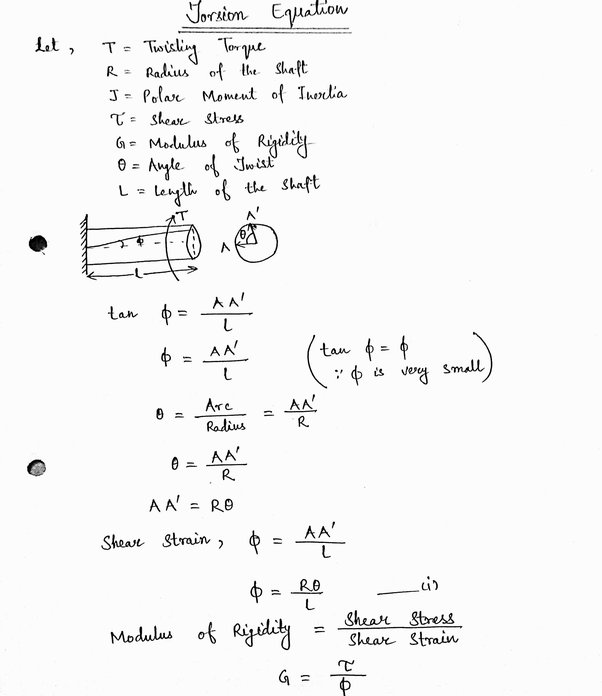 Torsion Equation
Let, T = Twisting Torque
R = Radius of the Shaft
J = Polar Moment of Inertia
τ = Shear Stress
G = Modulus of Rigidity
θ = Angle of Twist
L = Length of the Shaft
T A'
ϕ θ
A
L
tan ϕ = AA'/L
ϕ = AA'/L (tan ϕ = ϕ
∵ ϕ is very small)
θ = Arc/Radius = AA'/R
θ = AA'/R
AA' = Rθ
Shear Strain, ϕ = AA'/L
ϕ = Rθ/L —(i)
Modulus of Rigidity = Shear Stress/Shear Strain
G = τ/ϕ